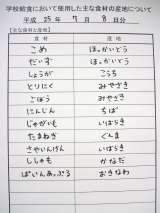 学校給食において使用した主な食材の産地について
平成 25年 7月 8日分
【主な食材と産地】
食材 産地
こめ ほっかいどう
だいず ほっかいどう
しょうが こうち
とりにく みやざき
ごぼう みやざき
にんじん ちば
じゃがいも いばらき
たまねぎ ぐんま
さやいんげん いばらき
ししゃも かなだ
ぱいんあっぷる おきなわ